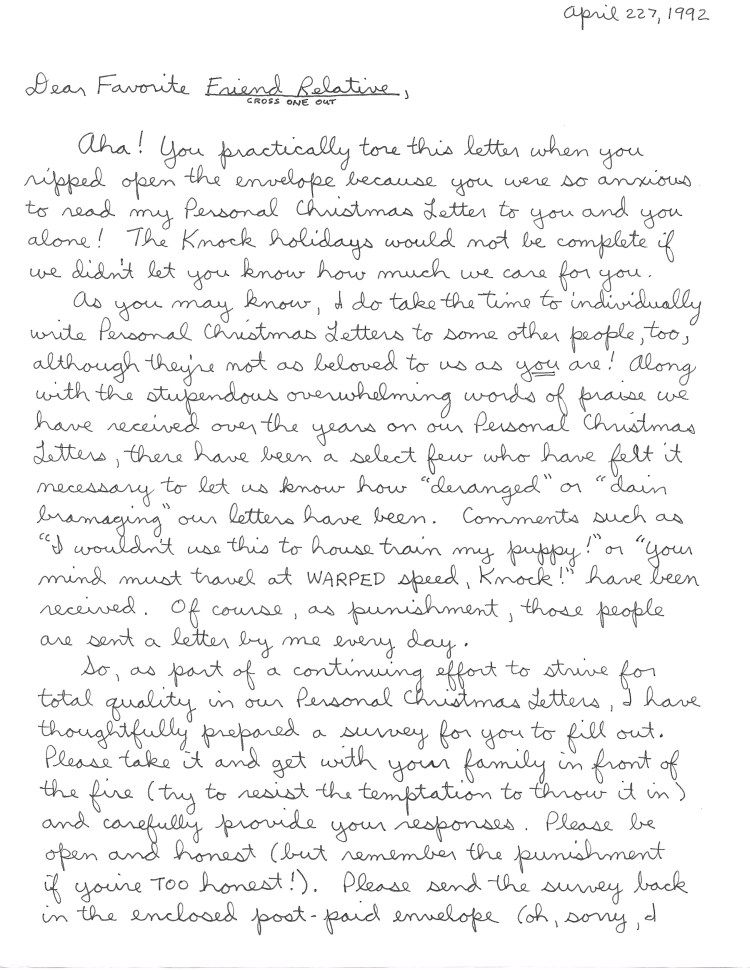 April 227, 1992
Dear Favorite Friend Relative,
CROSS ONE OUT
Aha! You practically tore this letter when you
ripped open the envelope because you were so anxious
to read my Personal Christmas Letter to you and you
alone! The Knock holidays would not be complete if
we didn't let you know how much we care for you.
As you may know, I do take the time to individually
write Personal Christmas Letters to some other people, too,
although they're not as beloved to us as you are! Along
with the stupendous overwhelming words of praise we
have received over the years on our Personal Christmas
Letters, there have been a select few who have felt it
necessary to let us know how "deranged" or "dain
bramaging" our letters have been. Comments such as
"I wouldn't use this to house train my puppy!" or "Your
mind must travel at WARPED speed, Knock!" have been
received. Of course, as punishment, those people
are sent a letter by me every day.
So, as part of a continuing effort to strive for
total quality in our Personal Christmas Letters, I have
thoughtfully prepared a survey for you to fill out.
Please take it and get with your family in front of
the fire (try to resist the temptation to throw it in)
and carefully provide your responses. Please be
open and honest (but remember the punishment
if you're TOO honest!). Please send the survey back
in the enclosed post-paid envelope (oh, sorry, I